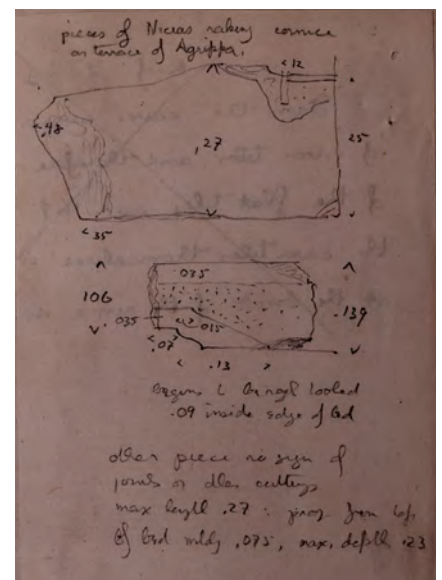 pieces of Nicias raking cornice
on terrace of Agrippa.
<12
.48
,27
25
<35
.035
106
.139
.035
.015
.07
< .13 >
begins to be
.09 inside edge of bed
other piece no sign of
joints or other cuttings
max length .27 : proj. from top
of bed mldg .075, max. depth .23